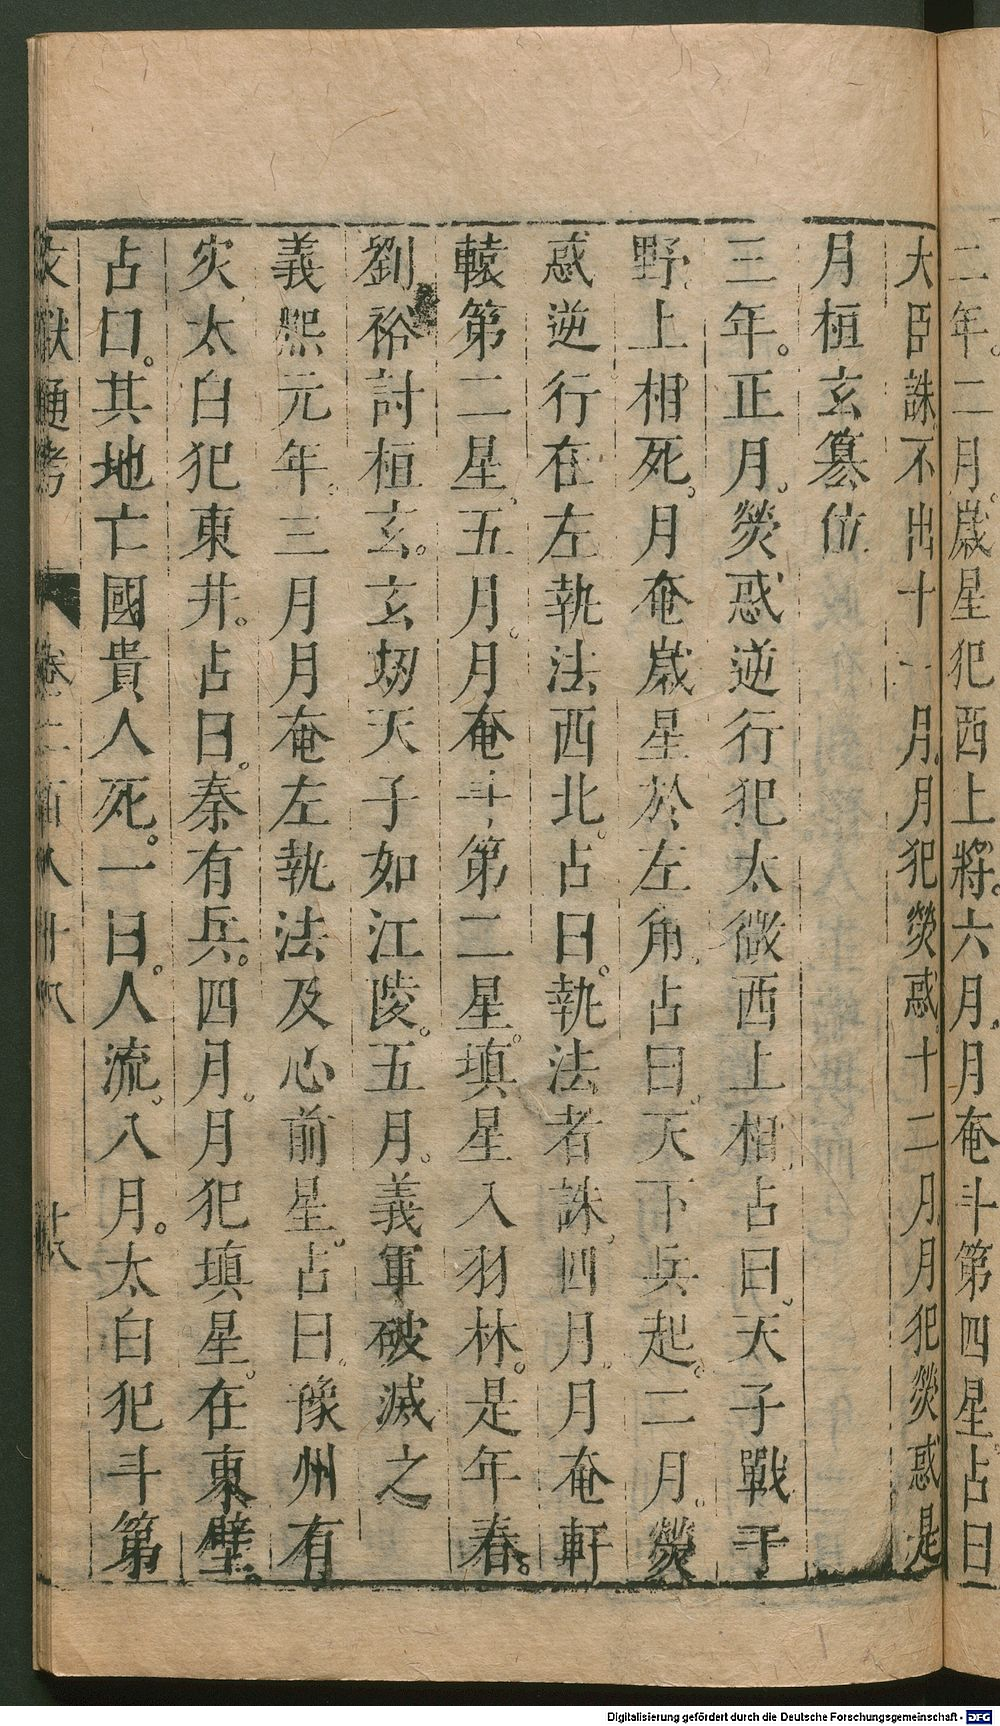 二年。二月。歲星犯西上將。六月。月奄斗第四星。占曰
大臣誅不出十一月。月犯熒惑。十二月。月犯熒惑是
月桓玄篡位
三年。正月。熒惑逆行犯太微西上相。占曰。天子戰于
野。上相死。月奄歲星於左角。占曰。天下兵起。二月。熒
惑逆行在左執法西北。占曰。執法者誅。四月。月奄軒
轅第二星。五月。月奄斗第二星。填星入羽林。是年春。
劉裕討桓玄。玄刼天子如江陵。五月。義軍破滅之
義熙元年。三月月奄左執法及心前星。占曰。豫州有
灾。太白犯東井。占曰。秦有兵。四月。月犯填星。在東壁。
占曰。其地亡國貴人死。一曰。人流。八月。太白犯斗第
文獻通考 卷二百八十八 十六
Digitalisierung gefördert durch die Deutsche Forschungsgemeinschaft - DFG